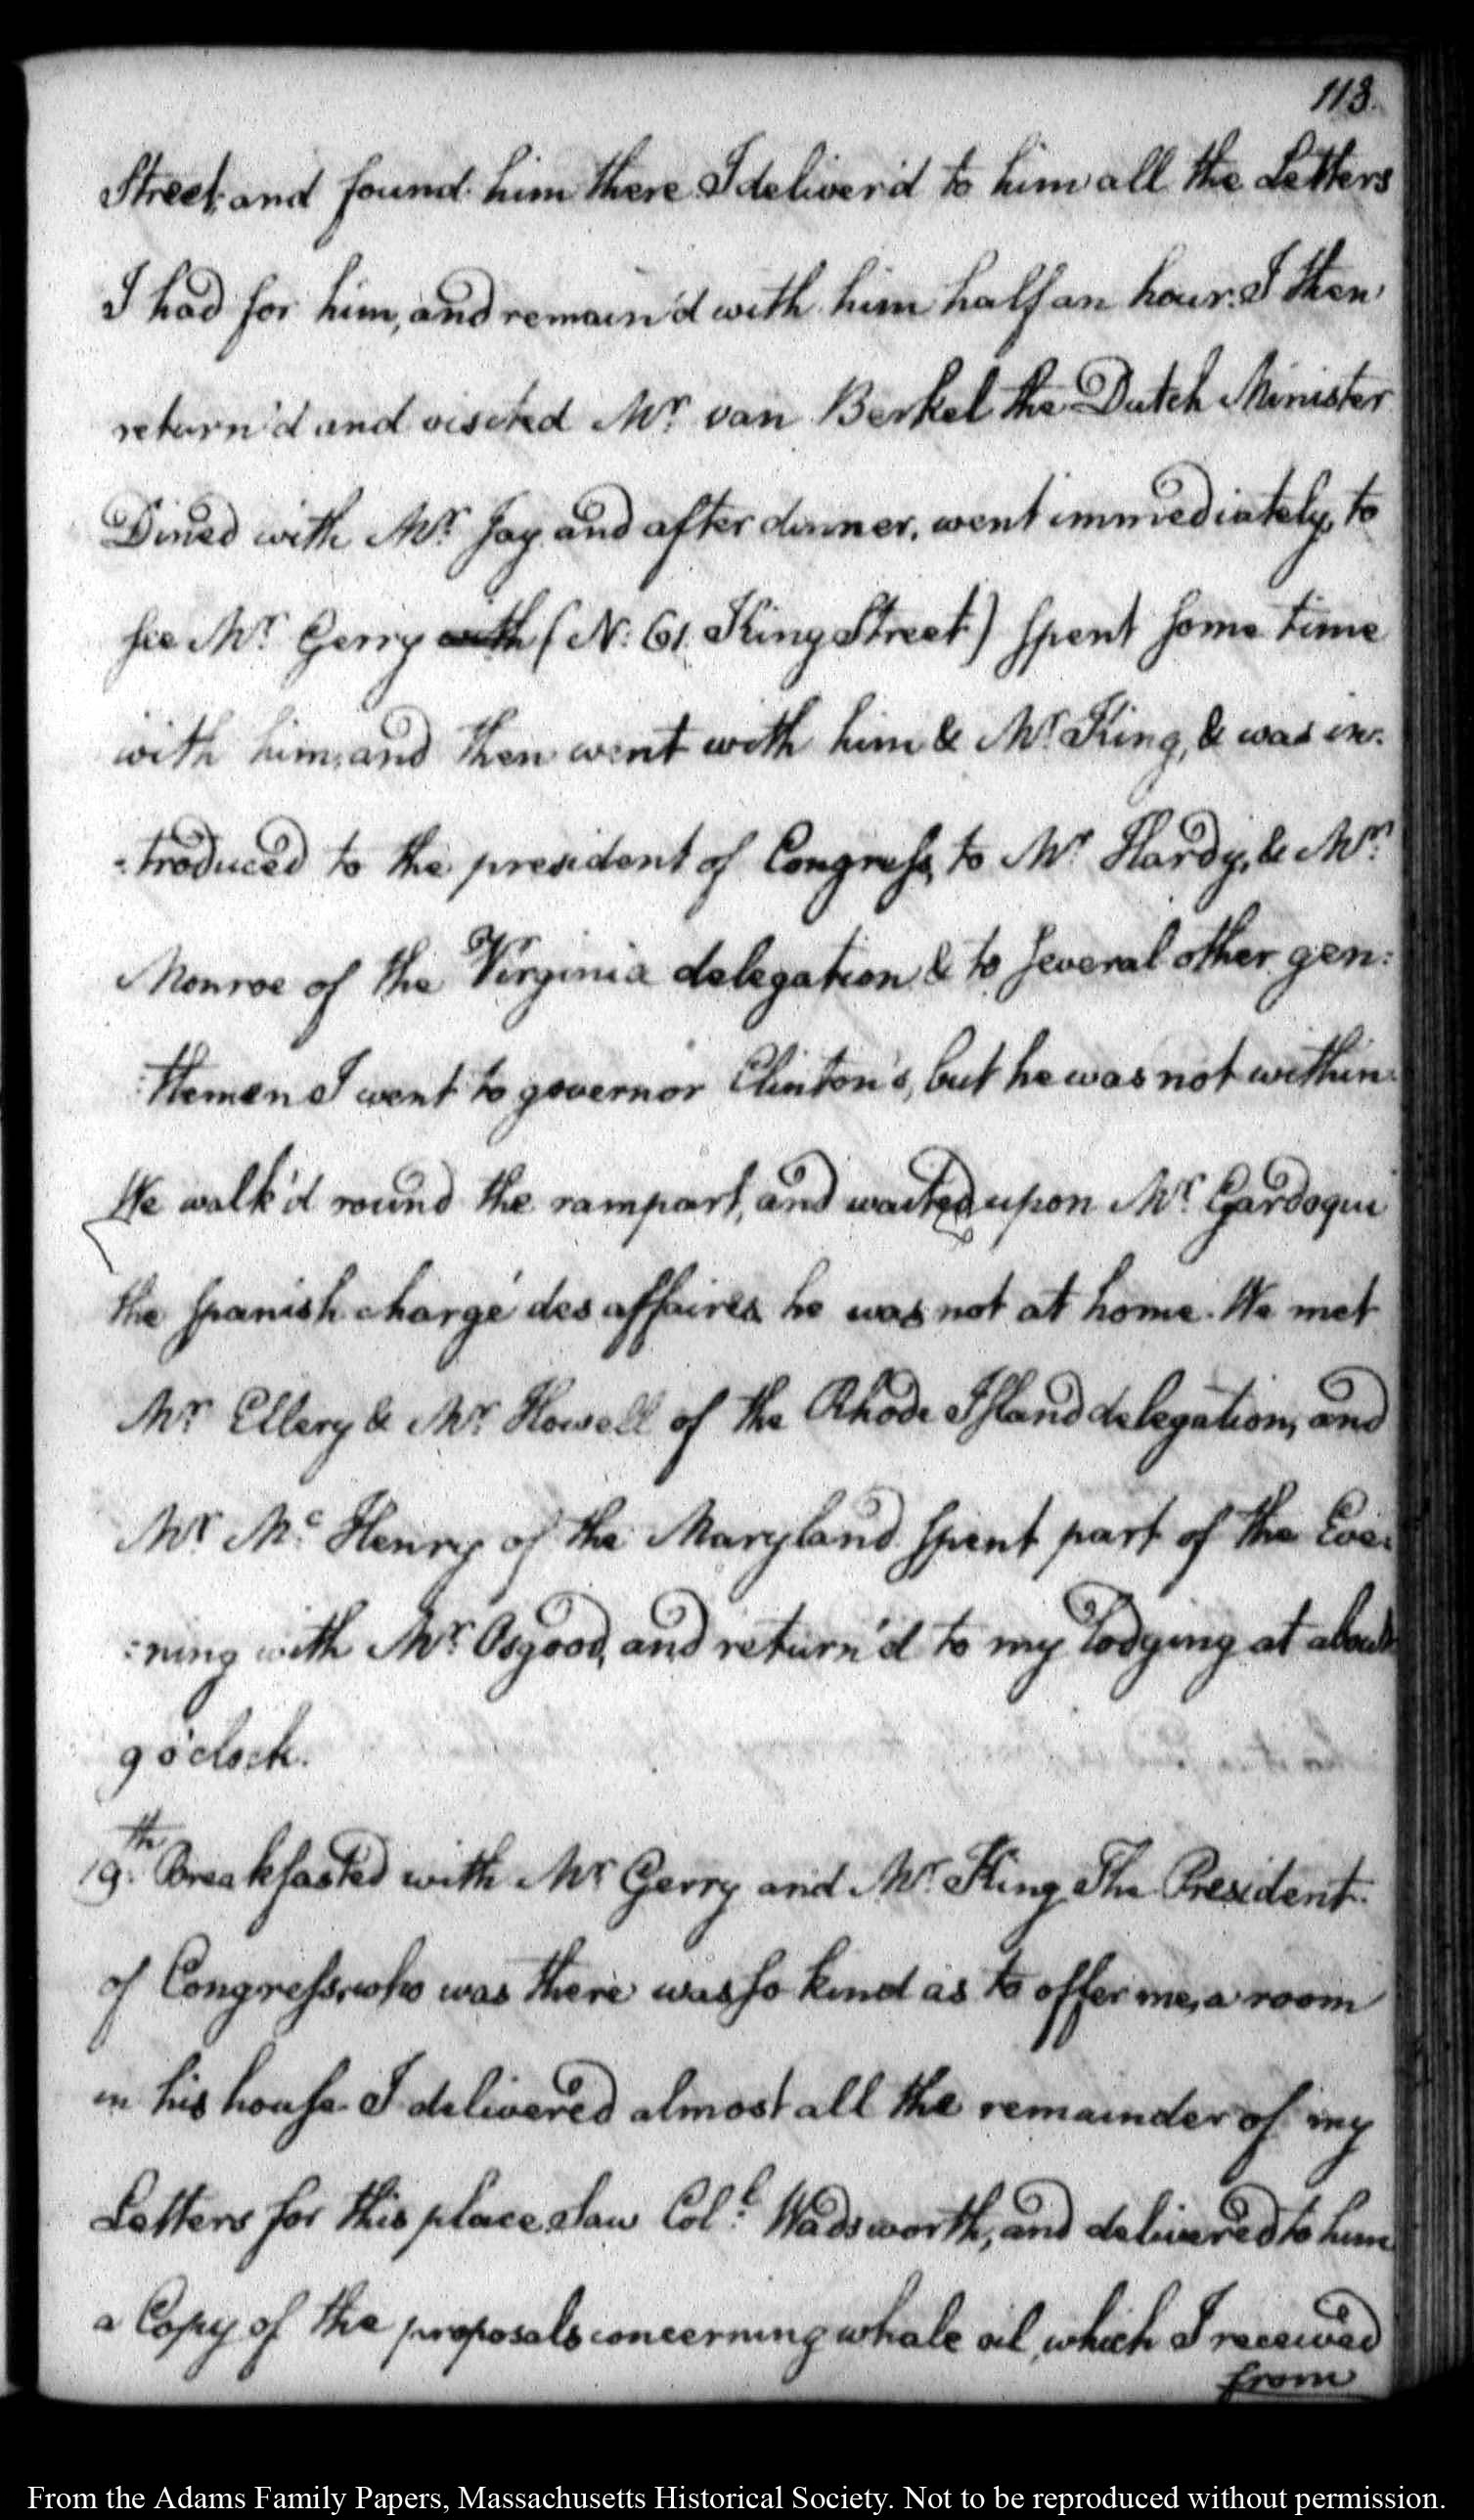 113.
Street, and found him there. I deliver'd to him all the Letters
I had for him, and remain'd with him half an hour. I then
return'd and visited Mr. van Berkel the Dutch Minister
Dined with Mr. Jay and after dinner, went immediately, to
see Mr. Gerry with (N: 61. King Street) spent some time
with him, and then went with him & Mr. King, & was in:
:troduced to the president of Congress, to Mr. Hardy, & Mr.
Monroe of the Virginia delegation & to several other gen:
:tlemen I went to governor Clinton's, but he was not within.
We walk'd round the rampart, and waited upon Mr. Gardoqui
the Spanish chargé des affaires he was not at home. We met
Mr. Ellery & Mr. Howell of the Rhode Island delegation, and
Mr. Mc. Henry of the Maryland. Spent part of the Eve:
:ning with Mr. Osgood, and return'd to my lodging at about
9 o'clock.
19th. Breakfasted with Mr. Gerry and Mr. King. The President
of Congress, who was there was so kind as to offer me, a room
in his house. I delivered almost all the remainder of my
Letters for this place, saw Coll. Wadsworth, and delivered to him
a Copy of the proposals concerning whale oil, which I received
from
From the Adams Family Papers, Massachusetts Historical Society. Not to be reproduced without permission.